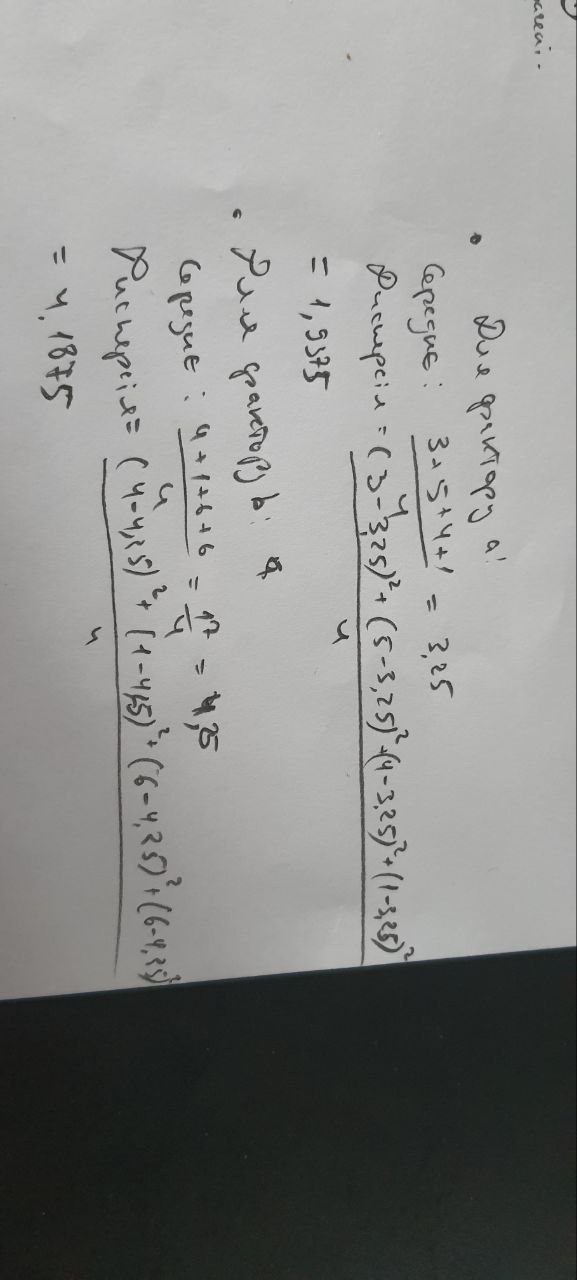 • Для фактору a:
Середнє: (3+5+4+1)/4 = 3,25
Дисперсія = ((3-3,25)²+(5-3,25)²+(4-3,25)²+(1-3,25)²)/4
= 1,9375
• Для фактору b:
Середнє: (4+1+6+6)/4 = 17/4 = 4,25
Дисперсія = ((4-4,25)²+(1-4,25)²+(6-4,25)²+(6-4,25)²)/4
= 4,1875